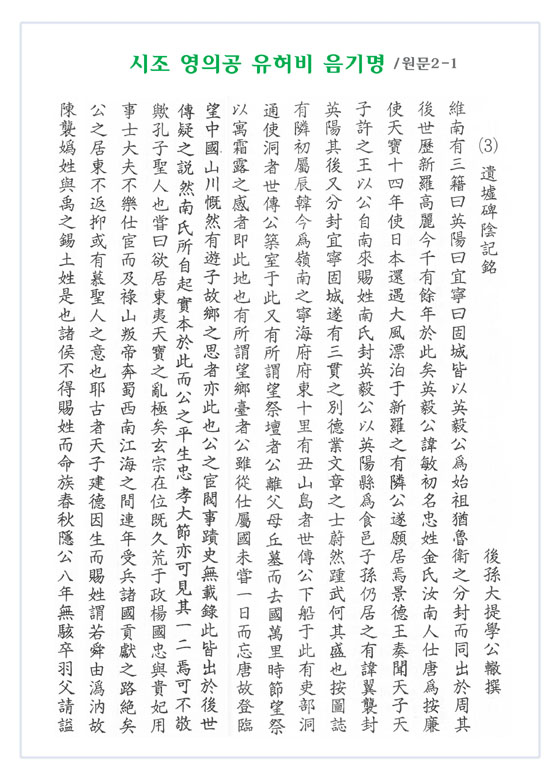 시조 영의공 유허비 음기명 /원문2-1
(3) 遺墟碑陰記銘
後孫大提學公轍撰
維南有三籍曰英陽曰宜寧曰固城皆以英毅公爲始祖猶魯衛之分封而同出於周其
後世歷新羅高麗今千有餘年於此矣英毅公諱敏初名忠姓金氏汝南人仕唐爲按廉
使天寶十四年使日本還遇大風漂泊于新羅之有隣公遂願居焉景德王奏聞天子天
子許之王以公自南來賜姓南氏封英毅公以英陽縣爲食邑子孫仍居之有諱翼襲封
英陽其後又分封宜寧固城遂有三貫之別德業文章之士蔚然踵武何其盛也按圖誌
有隣初屬辰韓今爲嶺南之寧海府府東十里有丑山島者世傳公下船于此有吏部洞
通使洞者世傳公築室于此又有所謂望祭壇者公離父母丘墓而去國萬里時節望祭
以寓霜露之感者即此地也有所謂望鄉臺者公雖從仕屬國未嘗一日而忘唐故登臨
望中國山川慨然有遊子故鄉之思者亦此也公之宦閥事蹟史無載錄此皆出於後世
傳疑之説然南氏所自起實本於此而公之平生忠孝大節亦可見其一二焉可不敬
歟孔子聖人也嘗曰欲居東夷天寶之亂極矣玄宗在位既久荒于政楊國忠與貴妃用
事士大夫不樂仕宦而及祿山叛帝奔蜀西南江海之間連年受兵諸國貢獻之路絶矣
公之居東不返抑或有慕聖人之意也耶古者天子建德因生而賜姓謂若舜由潙汭故
陳襲嬀姓與禹之錫土姓是也諸侯不得賜姓而命族春秋隱公八年無駭卒羽父請謚